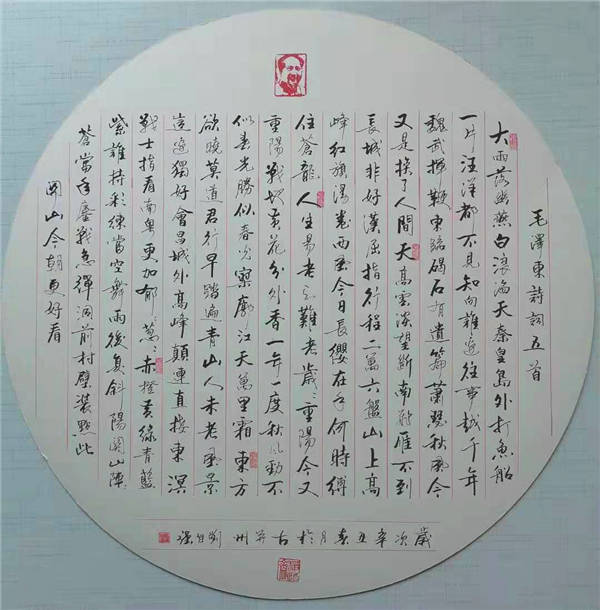 毛澤東詩詞五首
大雨落幽燕白浪滔天秦皇島外打魚船
一片汪洋都不見知向誰邊往事越千年
魏武揮鞭東臨碣石有遺篇蕭瑟秋風今
又是換了人間天高雲淡望斷南飛雁不到
長城非好漢屈指行程二萬六盤山上高
峰紅旗漫卷西風今日長纓在手何時縛
住蒼龍人生易老天難老歲〻重陽今又
重陽戰地黃花分外香一年一度秋風勁不
似春光勝似春光寥廓江天萬里霜東方
欲曉莫道君行早踏遍青山人未老風景
這邊獨好會昌城外高峰顛連直接東溟
戰士指看南粵更加郁〻蔥〻赤橙黃綠青藍
紫誰持彩練當空舞雨後復斜陽關山陣
蒼當年鏖戰急彈洞前村壁裝點此
關山今朝更好看
歲次辛丑春月於古并州